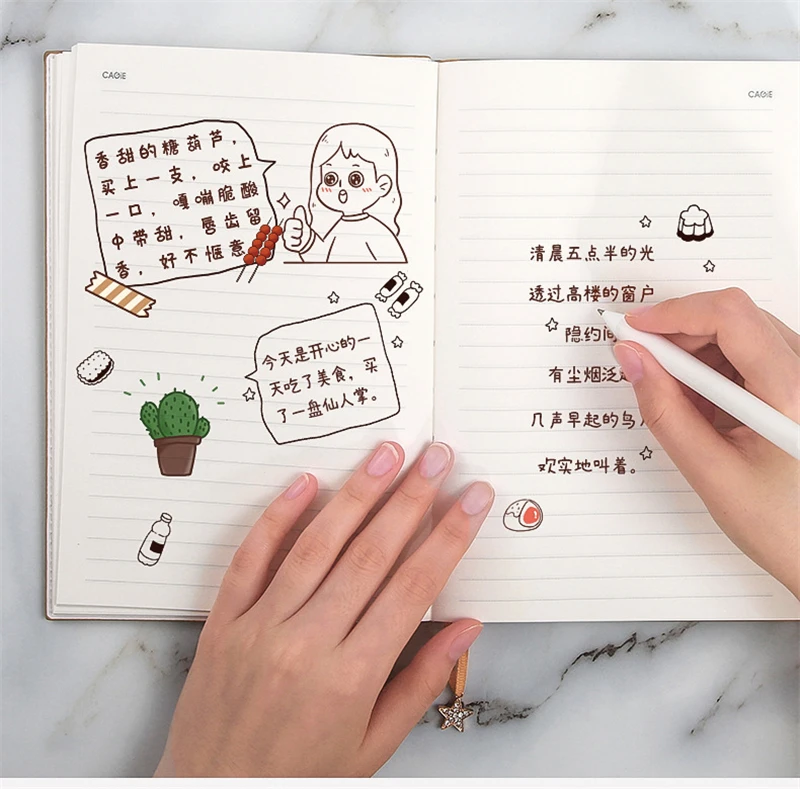 CAGIE
香甜的糖葫芦，
买上一支，咬上
一口，嘎嘣脆酸
中带甜，唇齿留
香，好不惬意
今天是开心的一
天吃了美食，买
了一盘仙人掌。
CAGIE
清晨五点半的光
透过高楼的窗户
隐约
有尘烟泛
几声早起的鸟
欢实地叫着。